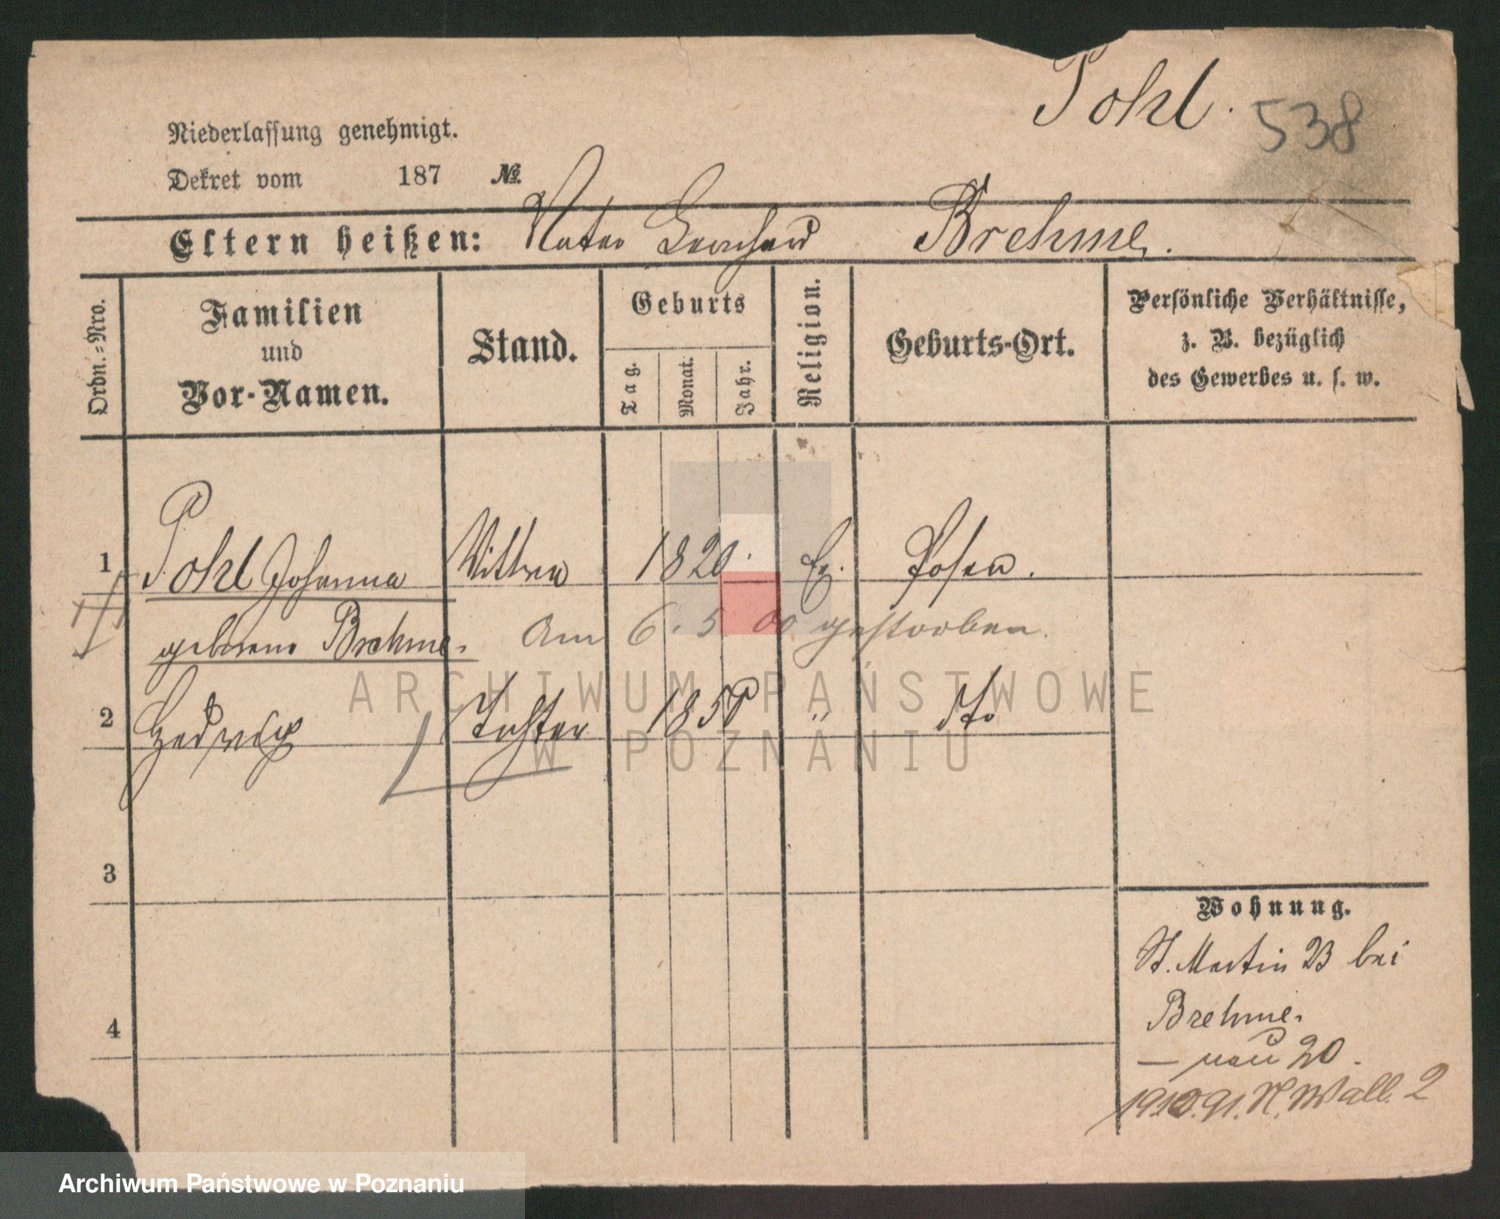 Pohl. 538
Niederlassung genehmigt.
Dekret vom 187 №
Eltern heißen: Vater Brehme.
Ordn.-Nro.
Familien
und
Vor-Namen.
Stand.
Geburts
Tag.
Monat.
Jahr.
Religion.
Geburts-Ort.
Persönliche Verhältnisse,
z. B. bezüglich
des Gewerbes u. s. w.
1 Pohl Johanna Wittwe 1820. Ev. Posen.
geborene Brehme. Am 6. 5 00 gestorben.
2 Hedwig Tochter 185 " dto
ARCHIWUM PAŃSTWOWE
W POZNANIU
3
Wohnung.
St. Martin 23 bei
Brehme.
4
— neu 20.
Wall. 2
Archiwum Państwowe w Poznaniu